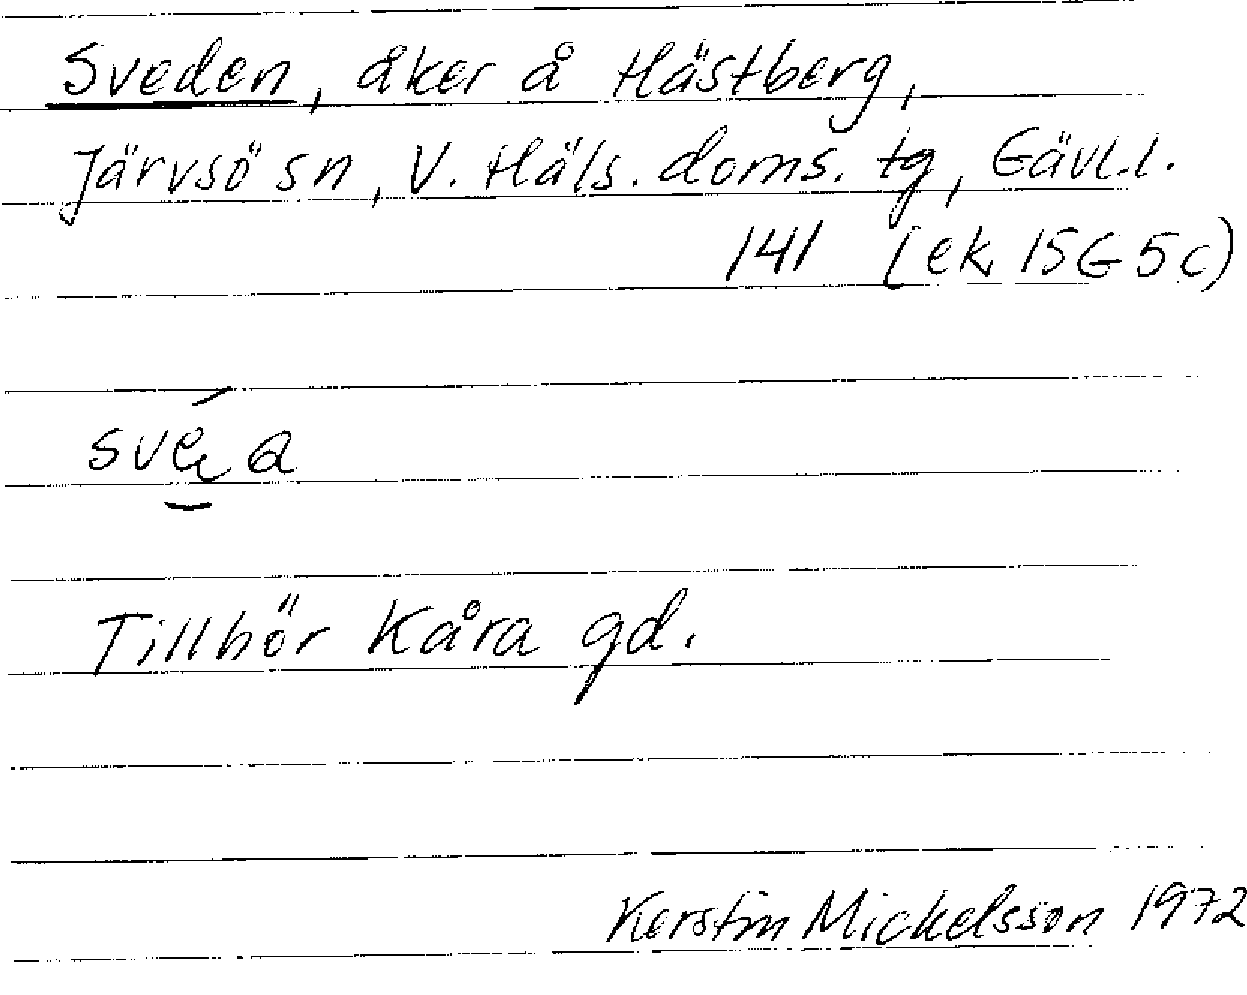 Sveden, åker å Hästberg,
Järvsö sn, V. Häls. doms. tg, Gävl.l.
141 (ek. 15G5c)
Tillhör Kåra gd.
Kerstin Mickelsson 1972